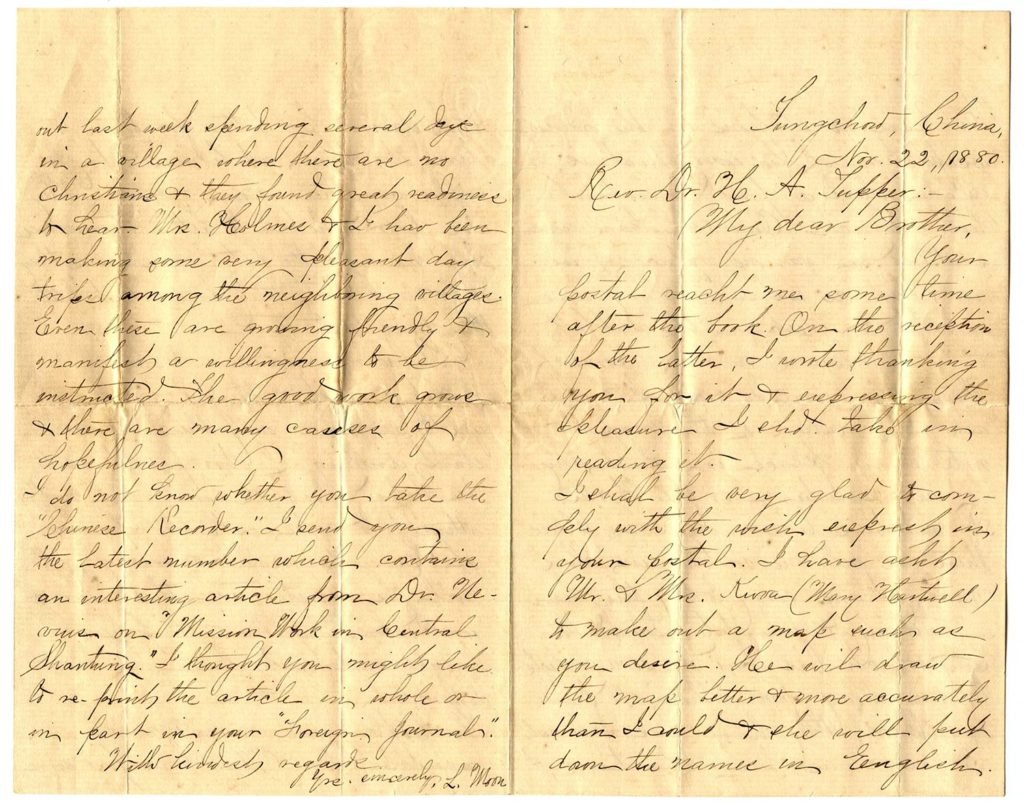 Tungchow, China,
Nov. 22, 1880.
Rev. Dr. H. A. Tupper:-
My dear Brother,
Your
postal reacht me some time
after the book. On the reception
of the latter, I wrote thanking
you for it & expressing the
pleasure I did take in
reading it.
I shal be very glad to com-
ply with the wish exprest in
your postal. I have askt
Mr. & Mrs. Kwou (Mary Hartwell)
to make out a map such as
you desire. He wil draw
the map better & more accurately
than I could & she will put
down the names in English.
out last week spending several days
in a village where there are no
Christians & they found great readiness
to hear. Mrs. Holmes & I hav been
making some very pleasant day
trips among the neighboring villages.
Even these are growing friendly &
manifest a willingness to be
instructed. The good work grows
& there are many caseses of
hopefulnes.
I do not know whether you take the
"Chinese Recorder." I send you
the latest number which contains
an interesting article from Dr. Ne-
vius on "Mission Work in Central
Shantung." I thought you might like
to re-print the article in whole or
in part in your "Foreign Journal."
With kindest regards
Yrs. sincerely, L. Moon